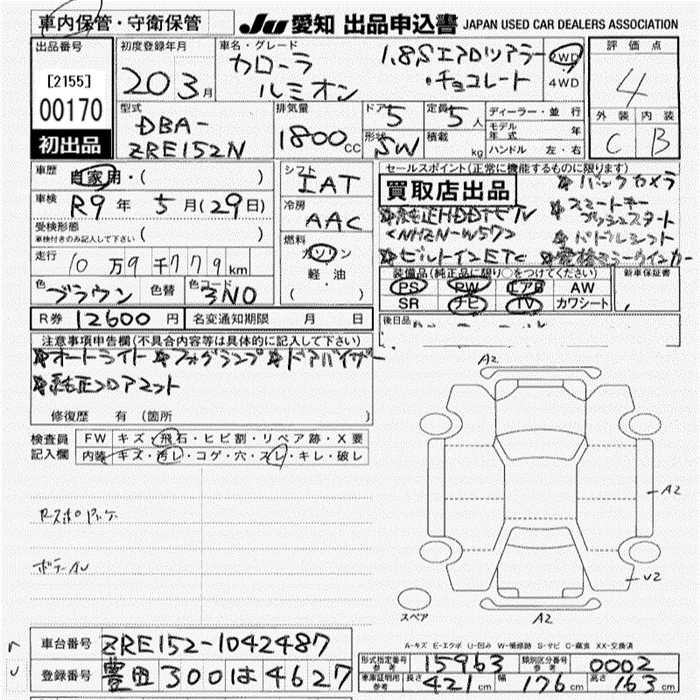 車内保管・守衛保管
JU 愛知 出品申込書 JAPAN USED CAR DEALERS ASSOCIATION
出品番号
[2155]
00170
初出品
初度登録年月
20 3月
車名・グレード
カローラ ルミオン
1.8S エアロツアラー
・チョコレート
2WD
4WD
評価点
4
外装 内装
C B
型式
DBA-
ZRE152N
排気量
1800cc
ドア 5
形状 SW
定員 5人
積載 kg
ディーラー・並行
モデル年式 年
ハンドル 左・右
車歴 自家用・( )
車検 R9年 5月(29日)
受検形態
車検付きのみ記入して下さい ( )
走行 10万9千779km
色 ブラウン 色替 色コード 3N0
シフト IAT
冷房 AAC
燃料
ガソリン
軽・油
( )
セールスポイント(正常に機能するものに限り)
買取店出品
※バックカメラ
※スマートキー
プッシュスタート
※純正HDDナビTV
<NHZN-W57>
※パドルシフト
※ビルトインETC
※電格ミラーウインカー
装備品(純正品に限り○をつけてください)
PS PW エアB AW
SR ナビ TV カワシート
新車保証書
後日品
R券 12600円
名変通知期限 月 日
注意事項申告欄(不具合内容等は具体的に記入して下さい)
※オートライト ※フォグランプ ※ドアバイザー
※純正フロアマット
修復歴 有 (箇所 )
検査員記入欄
FW キズ・飛石・ヒビ割・リペア跡・X要
内装 キズ・汚レ・コゲ・穴・スレ・キレ・破レ
A2
A2
U2
A2
スペア
A-キズ E-エクボ U-凹み W-補修跡 S-サビ C-腐食 XX-交換済
車台番号 ZRE152-1042487
登録番号 豊田 300 は 4627
型式指定番号 参考 15963
類別区分番号 参考 0002
車庫証明用 参考 長さ 421cm 幅 176cm 高さ 163cm